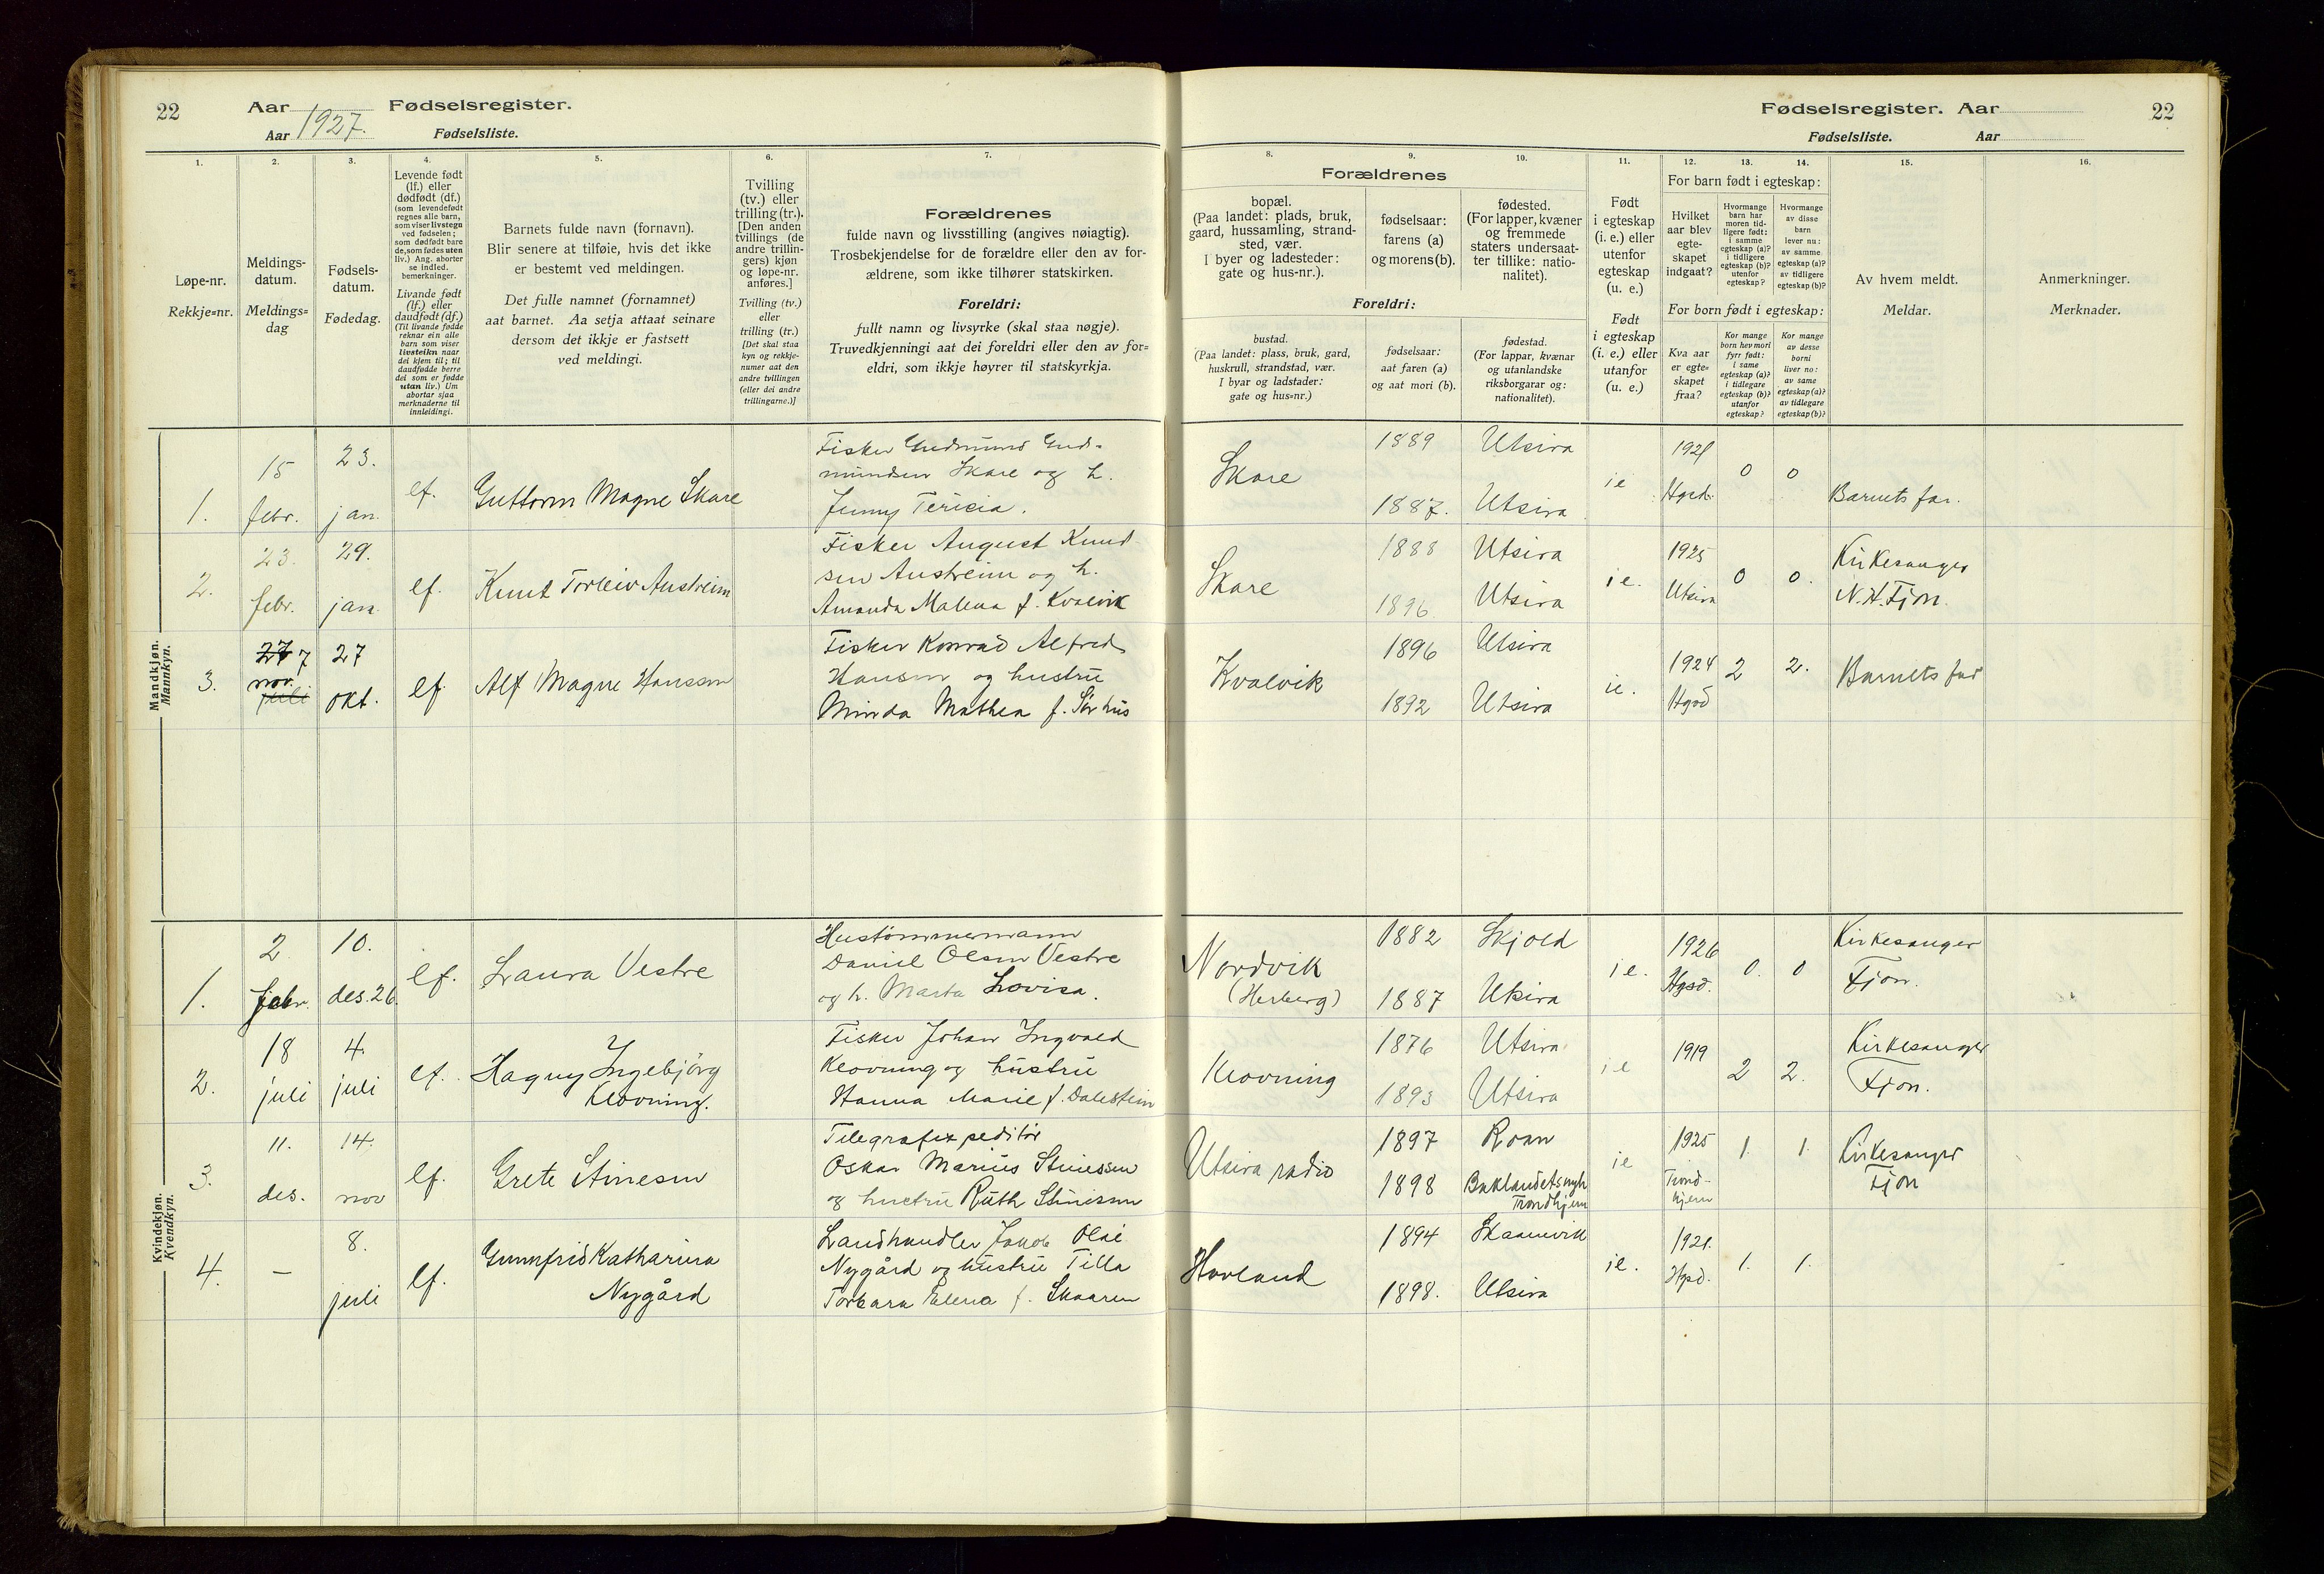 22
Aar 1927. Fødselsregister.
Aar Fødselsliste.
1.
2.
3.
4.
5.
6.
7.
Løpe-nr.
Rekkje=nr.
Meldings-
datum.
Meldings=
dag
Fødsels-
datum.
Fødedag.
Levende født
(lf.) eller
dødfødt (df.)
(som levendefødt
regnes alle barn,
som viser livstegn
ved fødselen;
som dødfødt bare
de, som fødes uten
liv.) Ang. aborter
se indled.
bemerkninger.
Livande født
(lf.) eller
daudfødt (df.)
(Til livande fødde
reknar ein alle
barn som viser
livsteikn naar
dei kjem til; til
daudfødde berre
dei som er fødde
utan liv.) Um
abortar sjaa
merknaderne til
innleidingi.
Barnets fulde navn (fornavn).
Blir senere at tilføie, hvis det ikke
er bestemt ved meldingen.
Det fulle namnet (fornamnet)
aat barnet. Aa setja attaat seinare
dersom det ikkje er fastsett
ved meldingi.
Tvilling
(tv.) eller
trilling (tr.).
[Den anden
tvillings (de
andre trillin-
gers) kjøn
og løpe-nr.
anføres.]
Tvilling (tv.)
eller
trilling (tr.)
[Det skal staa
kyn og rekkje-
numer aat den
andre tvillingen
(eller dei andre
trillingarne.)]
Forældrenes
fulde navn og livsstilling (angives nøiagtig).
Trosbekjendelse for de forældre eller den av for-
ældrene, som ikke tilhører statskirken.
Foreldri:
fullt namn og livsyrke (skal staa nøgje).
Truvedkjenningi aat dei foreldri eller den av for=
eldri, som ikkje høyrer til statskyrkja.
Mandkjøn.
Mannkyn.
1.
15
febr.
23.
jan.
lf.
Guttorm Magne Skare
Fisker Gudmund Gud-
mundsen Skare og h.
Jenny Tericia.
2.
23.
febr.
29.
jan.
lf.
Knut Torleiv Austreim
Fisker August Knud
sen Austreim og h.
Amanda Malena f. Kvalvik
3.
27 7
nov.
juli
27
okt.
lf.
Alf Magne Hanssen
Fisker Konrad Alfred
Hansen og hustru
Minda Mathea f. Sørhus
Kvindekjøn.
Kvendkyn.
1.
2
febr.
10.
des. 26.
lf.
Laura Vestre
Hustømmermann
Daniel Olsen Vestre
og h. Marta Lovisa.
2.
18
juli
4.
juli
lf.
Hagny Ingebjörg
Klovning.
Fisker Johan Ingvald
Klovning og hustru
Hanna Marie f. Dalestein
3.
11.
des.
14.
nov
lf.
Grete Stinesen
Telegrafexpeditør
Oskar Marius Stinessen
og hustru Ruth Stinissen
4.
—
8.
juli
lf.
Gunnfrid Katharina
Nygård
Landhandler Jakob Olai
Nygård og hustru Tilla
Torbara Elena f. Skaaren
Fødselsregister. Aar
22
Fødselsliste. Aar
8.
9.
10.
11.
12.
13.
14.
15.
16.
Forældrenes
bopæl.
(Paa landet: plads, bruk,
gaard, hussamling, strand-
sted, vær.
I byer og ladesteder:
gate og hus-nr.).
fødselsaar:
farens (a)
og morens (b).
fødested.
(For lapper, kvæner
og fremmede
staters undersaat-
ter tillike: natio-
nalitet).
Foreldri:
bustad.
(Paa landet: plass, bruk, gard,
huskrull, strandstad, vær.
I byar og ladstader:
gate og hus=nr.)
fødselsaar:
aat faren (a)
og aat mori (b).
fødestad.
(For lappar, kvænar
og utanlandske
riksborgarar og:
nationalitet).
Født
i egteskap
(i. e.) eller
utenfor
egteskap
(u. e.)
Født
i egteskap
(i. e.) eller
utanfor
(u. e.)
For barn født i egteskap:
Hvilket
aar blev
egte-
skapet
indgaat?
Hvormange
barn har
moren tid-
ligere født:
i samme
egteskap (a)?
i tidligere
egteskap (b)?
utenfor
egteskap?
Hvormange
av disse
barn
lever nu:
av samme
egteskap (a)?
av tidligere
egteskap (b)?
For born født i egteskap:
Kva aar
er egte=
skapet
fraa?
Kor mange
born hev mori
fyrr født:
i same
egteskap (a)?
i tidlegare
egteskap (b)?
utanfor
egteskap?
Kor mange
av desse
borni
liver no:
av same
egteskap (a)?
av tidlegare
egteskap (b)?
Av hvem meldt.
Meldar.
Anmerkninger.
Merknader.
Skare
1889
1887.
Utsira
Utsira
ie
1921
Hgsd.
0
0
Barnets far.
Skare
1888
1896
Utsira
Utsira
ie.
1925
Utsira
0
0.
Kirkesanger
N. H. Fjon.
Kvalvik
1896
1892
Utsira
Utsira
ie.
1924
Hgsd
2
2.
Barnets far
Nordvik
(Herberg)
1882
1887
Skjold
Utsira
ie.
1926
Hgsd.
0.
0
Kirkesanger
Fjon.
Klovning
1876
1893
Utsira
Utsira
ie
1919
2
2.
Kirkesanger
Fjon.
Utsira radio
1897
1898
Roan
Trondhjem
ie
1925
Trond-
hjem
1.
1.
Kirkesanger
Fjon
Hovland
1894
1898.
Skaanevik
Utsira
ie.
1921.
Hgsd.
1.
1.